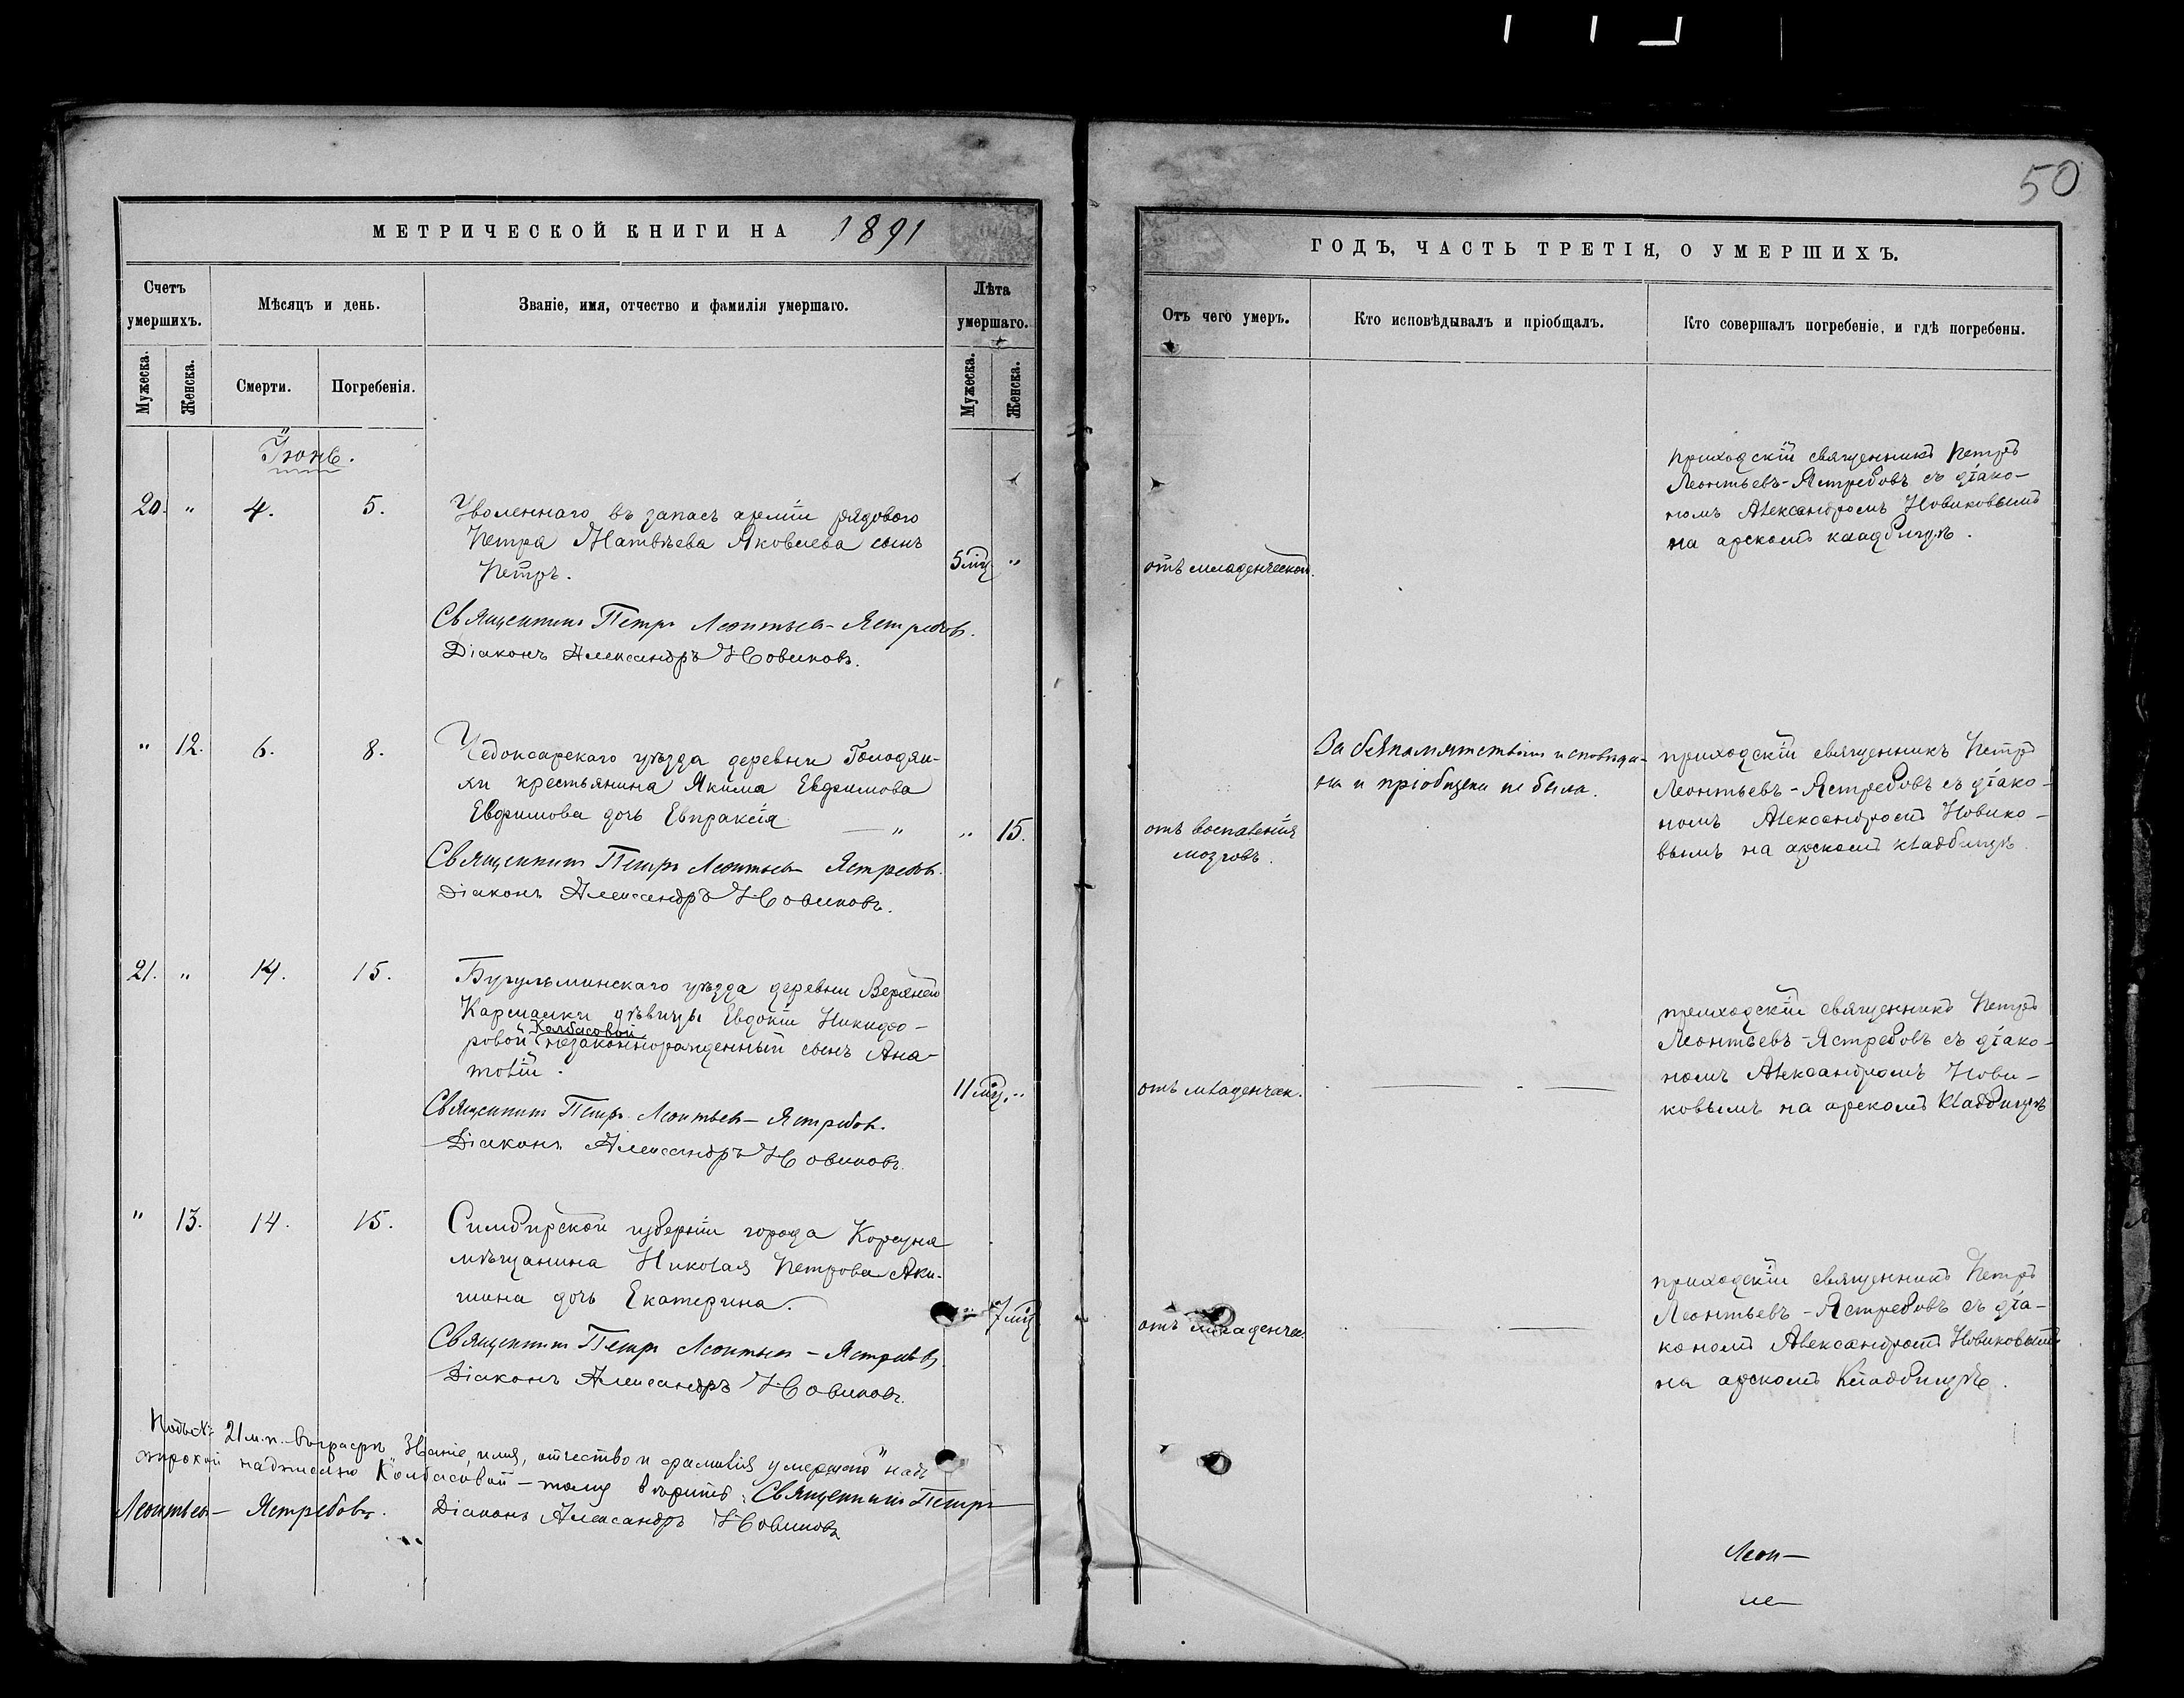 50
МЕТРИЧЕСКОЙ КНИГИ НА 1891
ГОДЪ, ЧАСТЬ ТРЕТІЯ, О УМЕРШИХЪ.
Счетъ умершихъ.
Мѣсяцъ и день.
Званіе, имя, отчество и фамилія умершаго.
Лѣта умершаго.
Отъ чего умеръ.
Кто исповѣдывалъ и пріобщалъ.
Кто совершалъ погребеніе, и гдѣ погребены.
Мужеска.
Женска.
Смерти.
Погребенія.
Мужеска.
Женска.
Іюнь.
20. " 4. 5.
Уволеннаго въ запасъ арміи рядового
Петра Матвѣева Яковлева сынъ
Петръ.
5 мц "
отъ младенческой.
приходскій священникъ Петръ
Леонтьевъ-Ястребовъ съ діако-
номъ Александромъ Новиковымъ
на арскомъ кладбищѣ.
Священникъ Петръ Леонтьев-Ястребовъ.
Діаконъ Александръ Новиковъ.
" 12. 6. 8.
Чебоксарскаго уѣзда деревни Голодяи-
хи крестьянина Якима Евфимова
Евфимова дочь Евпраксія "
" 15.
отъ воспаленія
мозговъ.
За безпамятствіемъ исповѣда-
на и пріобщена не была.
приходскій священникъ Петръ
Леонтьевъ-Ястребовъ съ діако-
номъ Александромъ Новико-
вымъ на арскомъ кладбищѣ.
Священникъ Петръ Леонтьев Ястребовъ.
Діаконъ Александръ Новиковъ.
21. " 14. 15.
Бугульминскаго уѣзда деревни Верхней
Кармалки дѣвицы Евдокіи Никифо-
Колбасовой
ровой незаконнорожденный сынъ Ана-
толій.
11 мц. "
отъ младенческ.
приходскій священникъ Петръ
Леонтьевъ-Ястребовъ съ діако-
номъ Александромъ Нови-
ковымъ на арскомъ кладбищѣ
Священникъ Петръ Леонтьев-Ястребовъ.
Діаконъ Александръ Новиковъ.
" 13. 14. 15.
Симбирской губерніи города Корсуна
мѣщанина Николая Петрова Аки-
шина дочь Екатерина.
" 7 мц
отъ младенчес.
приходскій священникъ Петръ
Леонтьевъ-Ястребовъ съ діа-
кономъ Александромъ Новиковымъ
на арскомъ кладбищѣ.
Священникъ Петръ Леонтьев-Ястребовъ
Діаконъ Александръ Новиковъ.
Подъ № 21 м.п. въ графѣ "Званіе, имя, отчество и фамилія умершаго" надъ
строкой надписано Колбасовой – тому вѣрить: Священникъ Петръ
Леонтьев-Ястребовъ. Діаконъ Александръ Новиковъ
Леон-